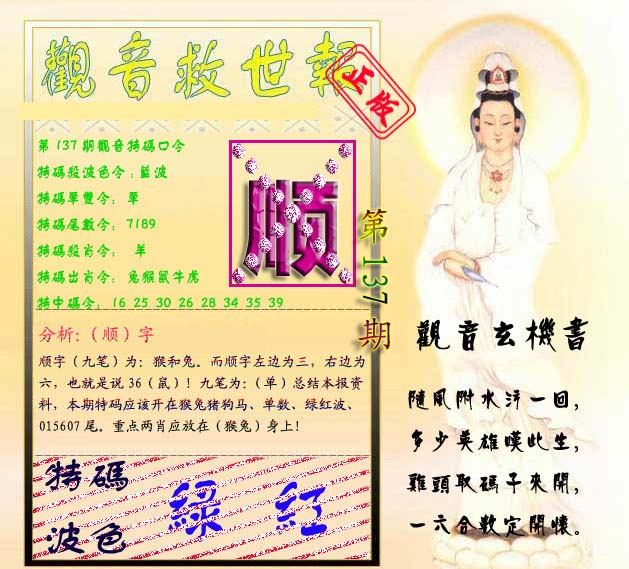 觀音救世報
正版
第137期觀音特碼口令
特碼殺波色令:藍波
特碼單雙令: 單
特碼尾數令: 7189
特碼殺肖令: 羊
特碼出肖令: 兔猴鼠牛虎
特中碼令: 16 25 30 26 28 34 35 39
顺
第137期
分析:（顺）字
顺字（九笔）为：猴和兔。而顺字左边为三，右边为
六，也就是说 36（鼠）！九笔为：（单）总结本报资
料，本期特码应该开在猴兔猪狗马、单数、绿红波、
015607 尾。重点两肖应放在（猴兔）身上！
特碼
波色
綠 紅
觀音玄機書
隨風附水浮一回，
多少英雄嘆此生，
難頭取碼子來開，
一六合數定開懷。